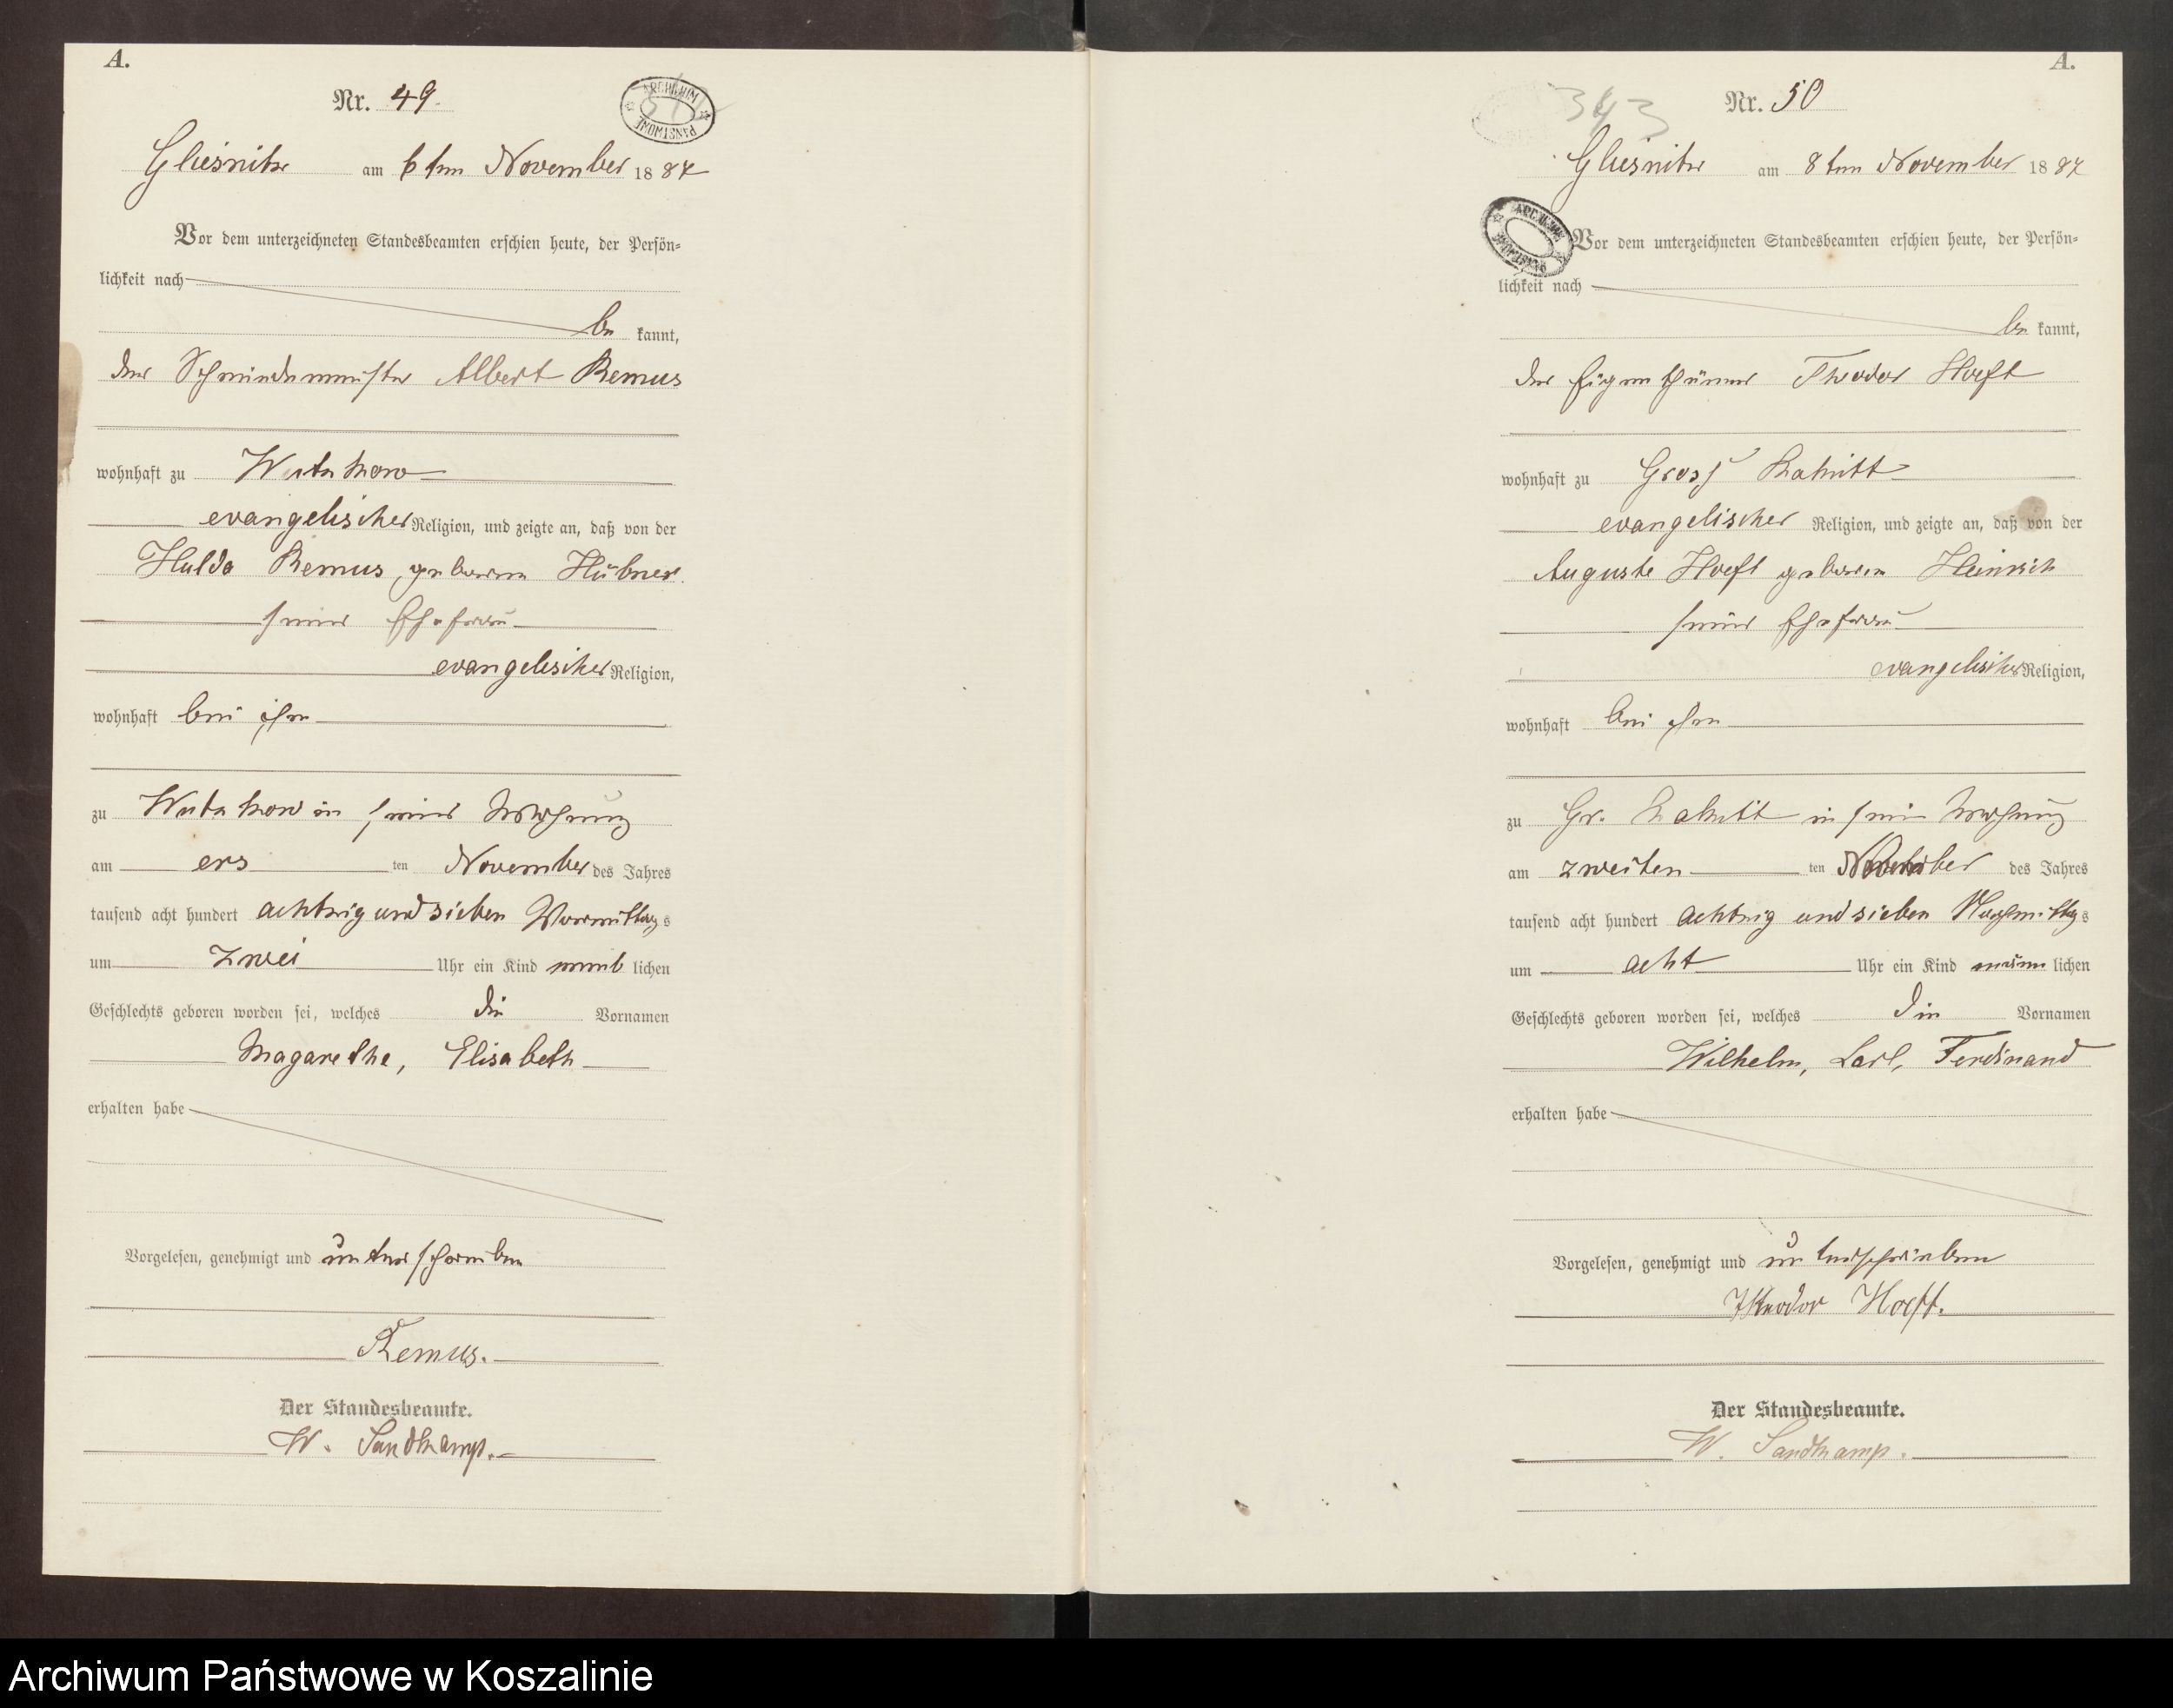 A.
Nr. 49.
ARCHIWUM PAŃSTWOWE
Gliesnitz am 6ten November 1887
Vor dem unterzeichneten Standesbeamten erschien heute, der Persön-
lichkeit nach
be kannt,
der Schmiedemeister Albert Remus
wohnhaft zu Wutzkow
evangelischer Religion, und zeigte an, daß von der
Hulda Remus, geborene Hübner
seiner Ehefrau
evangelischer Religion,
wohnhaft bei ihm
zu Wutzkow in seiner Wohnung
am ers ten November des Jahres
tausend acht hundert achtzig und sieben Vormittags
um zwei Uhr ein Kind weib lichen
Geschlechts geboren worden sei, welches die Vornamen
Magarethe, Elisabeth
erhalten habe
Vorgelesen, genehmigt und unterschrieben
Remus.
Der Standesbeamte.
W. Sandkamp.
A.
343
Nr. 50
Gliesnitz am 8ten November 1887
ARCHIWUM PAŃSTWOWE
Vor dem unterzeichneten Standesbeamten erschien heute, der Persön-
lichkeit nach
be kannt,
der Eigenthümer Theodor Hoeft
wohnhaft zu Gross Rakitt
evangelischer Religion, und zeigte an, daß von der
Auguste Hoeft geborene Heinrich
seiner Ehefrau
evangelischer Religion,
wohnhaft bei ihm
zu Gr. Rakitt in sein Wohnung
am zweiten ten November des Jahres
tausend acht hundert achtzig und sieben Nachmittags
um acht Uhr ein Kind männ lichen
Geschlechts geboren worden sei, welches die Vornamen
Wilhelm, Carl, Ferdinand
erhalten habe
Vorgelesen, genehmigt und unterschrieben
Theodor Hoeft.
Der Standesbeamte.
W. Sandkamp.
Archiwum Państwowe w Koszalinie